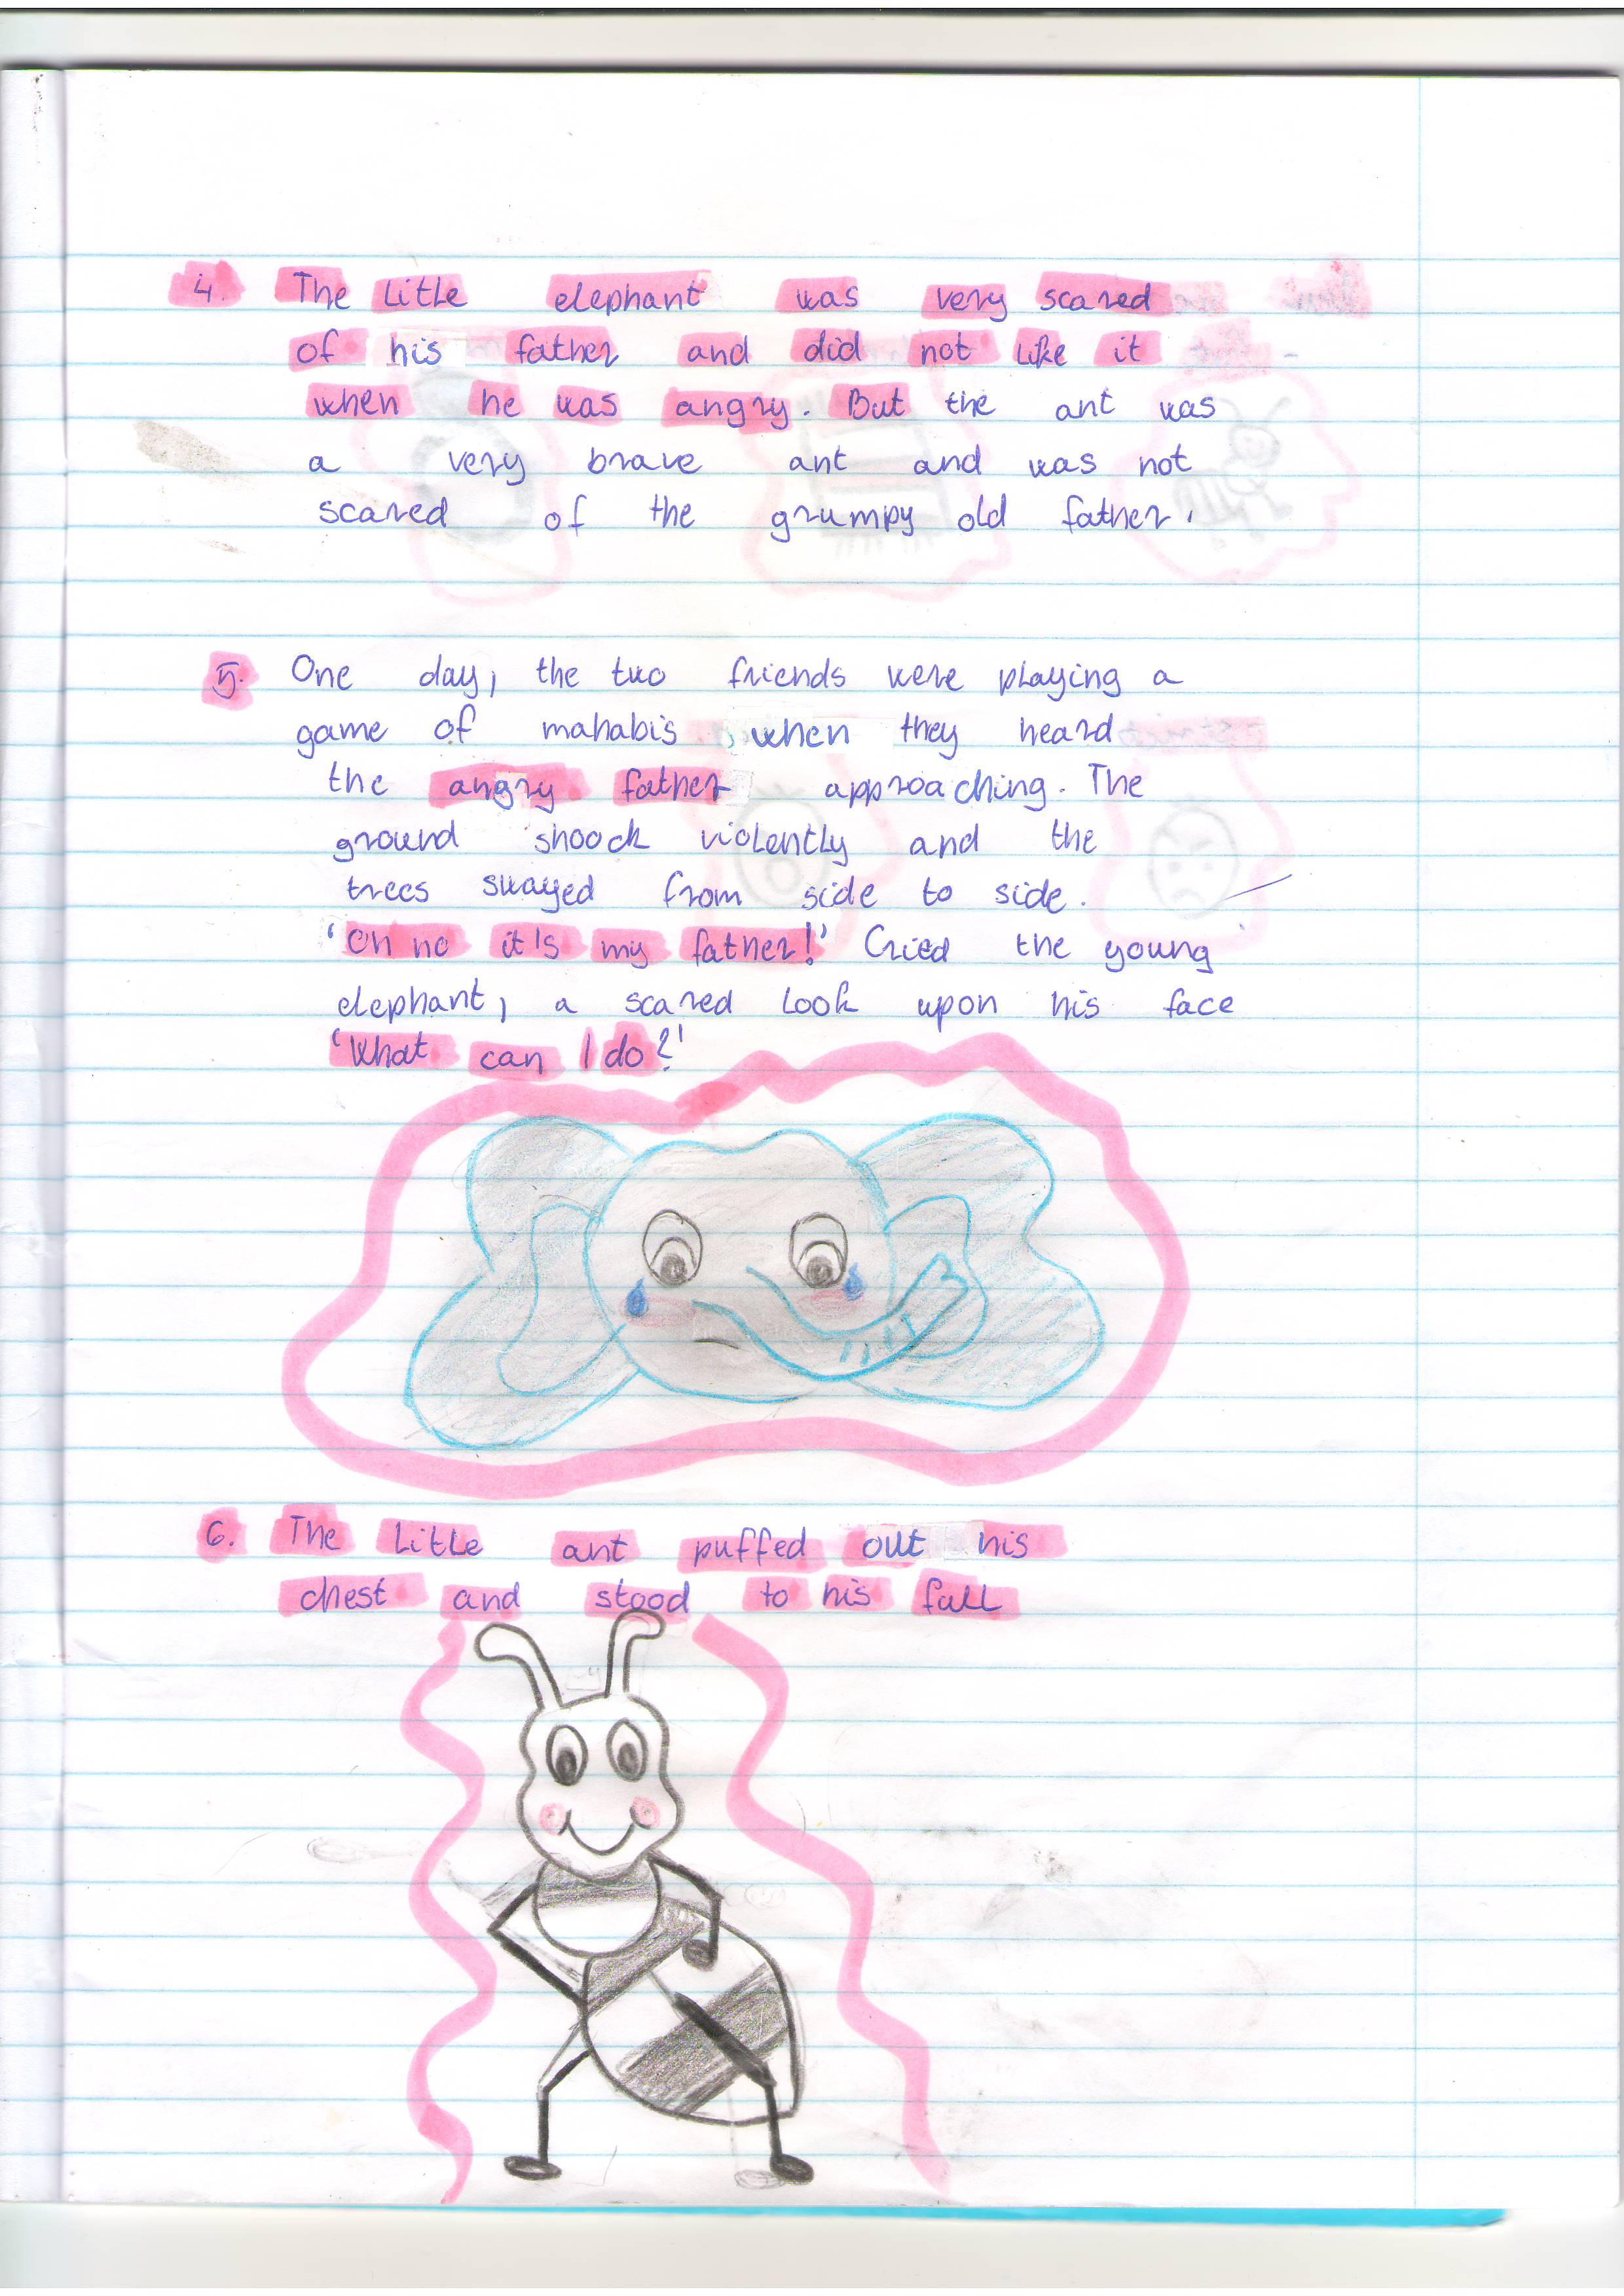 4. The little elephant was very scared
of his father and did not like it
when he was angry. But the ant was
a very brave ant and was not
scared of the grumpy old father.
5. One day, the two friends were playing a
game of mahabis when they heard
the angry father approaching. The
ground shoock violently and the
trees swayed from side to side.
'Oh no it's my father!' Cried the young
elephant, a scared look upon his face
'What can I do?'
6. The little ant puffed out his
chest and stood to his full